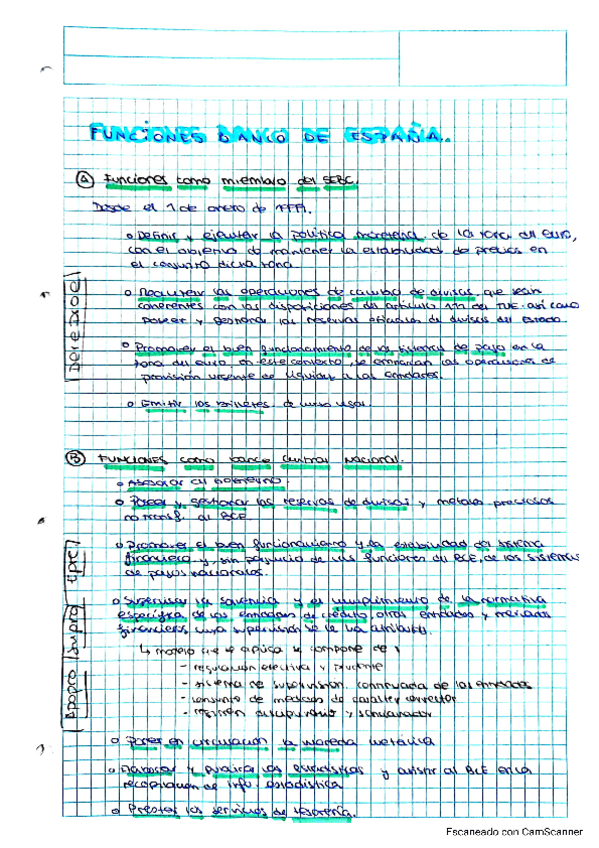 FUNCIONES BANCO DE ESPAÑA.
A Funciones como miembro del SEBC.
Desde el 1 de enero de 1999.
o Definir y ejecutar la política monetaria de la zona del euro,
con el objetivo de mantener la estabilidad de precios en
el conjunto dicha zona
o Realizar las operaciones de cambio de divisas que sean
coherentes con las disposiciones del artículo 111 del TUE. así como
poseer y gestionar las reservas oficiales de divisas del Estado
o Promover el bien funcionamiento de los sistemas de pago en la
zona del euro, en este contexto, se las operaciones de
provisión urgente de liquidez a las entidades.
o Emitir los billetes de curso legal.
B FUNCIONES como banco central nacional.
o Asesorar al gobierno.
o Poseer y gestionar las reservas de divisas y metales preciosos
no transf. al BCE
o Promover el bien funcionamiento y la estabilidad del sistema
financiero y, sin perjuicio de las funciones del BCE, de los sistemas
de pagos nacionales.
o Supervisar la solvencia y el cumplimiento de la normativa
específica de las entidades de crédito, otras entidades y mercados
financieros cuya supervisión se le ha atribuido.
↳ modelo que se aplica se compone de:
- regulación efectiva y prudente
- sistema de supervisión continuada de las entidades
- conjunto de medidas de carácter corrector
- régimen disciplinario y sancionador
o Poner en circulación la moneda metálica
o Elaborar y publicar las estadísticas y asistir al BCE en la
recopilación de info. estadística
o Prestar los servicios de tesorería.
Escaneado con CamScanner